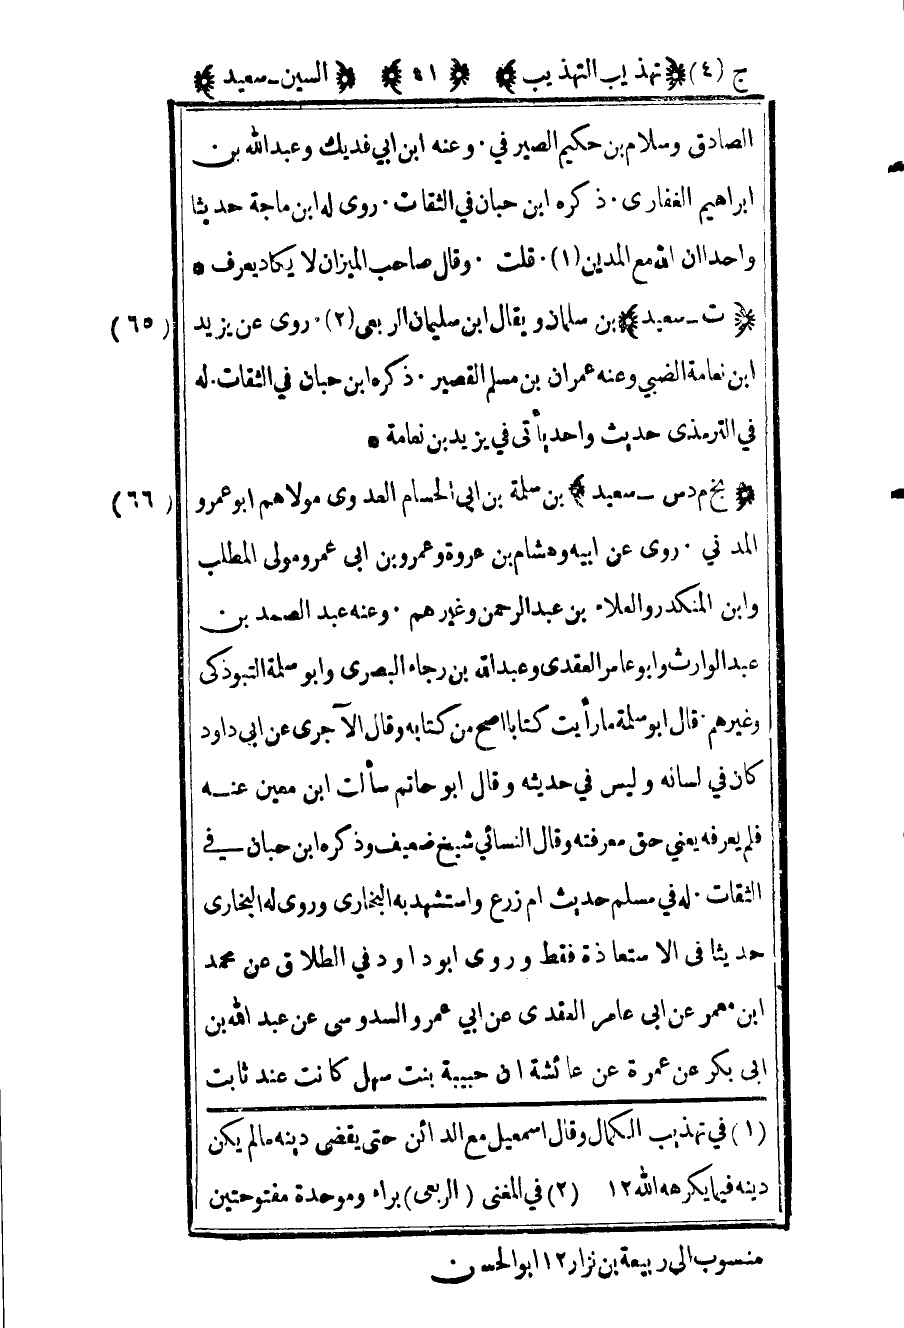 ج (٤) ﴿تهذيب التهذيب﴾ ﴿٤١﴾ ﴿السين ـ سعيد﴾
الصادق وسلام بن حكيم الصيرفي. وعنه ابن ابي فديك وعبدالله بن
ابراهيم الغفارى. ذكره ابن حبان في الثقات. روى له ابن ماجة حديثا
واحدا ان الله مع المدين (١). قلت. وقال صاحب الميزان لا يكاد يعرف *
﴿ت ـ سعيد﴾ بن سلمان ويقال ابن سليمان الربعى (٢). روى عن يزيد (٦٥)
ابن نعامة الضبي وعنه عمران بن مسلم القصير. ذكره ابن حبان في الثقات. له
في الترمذى حديث واحد يأتى في يزيد بن نعامة *
﴿بخ م د س ـ سعيد﴾ بن سلمة بن ابى الحسام العدوى مولاهم ابو عمرو (٦٦)
المدني. روى عن ابيه وهشام بن عروة وعمرو بن ابى عمرو مولى المطلب
وابن المنكدر والعلاء بن عبدالرحمن وغيرهم. وعنه عبد الصمد بن
عبدالوارث وابو عامر العقدى وعبدالله بن رجاء البصرى وابو سلمة التبوذكى
وغيرهم. قال ابو سلمة ما رأيت كتابا اصح من كتابه وقال الآجرى عن ابى داود
كان في لسانه وليس في حديثه وقال ابو حاتم سألت ابن معين عنه
فلم يعرفه يعني حق معرفته وقال النسائي شيخ ضعيف وذكره ابن حبان في
الثقات. له في مسلم حديث ام زرع واستشهد به البخارى وروى له البخارى
حديثا فى الاستعاذة فقط وروى ابو داود في الطلاق عن محمد
ابن معمر عن ابى عامر العقدى عن ابي عمرو السدوسى عن عبد الله بن
ابى بكر عن عمرة عن عائشة ان حبيبة بنت سهل كانت عند ثابت
(١) في تهذيب الكمال وقال اسمعيل مع الدائن حتى يقضى دينه مالم يكن
دينه فيما يكرهه الله ١٢ (٢) في المغنى (الربعى) براء وموحدة مفتوحتين
منسوب الى ربيعة بن نزار ١٢ ابوالحسن